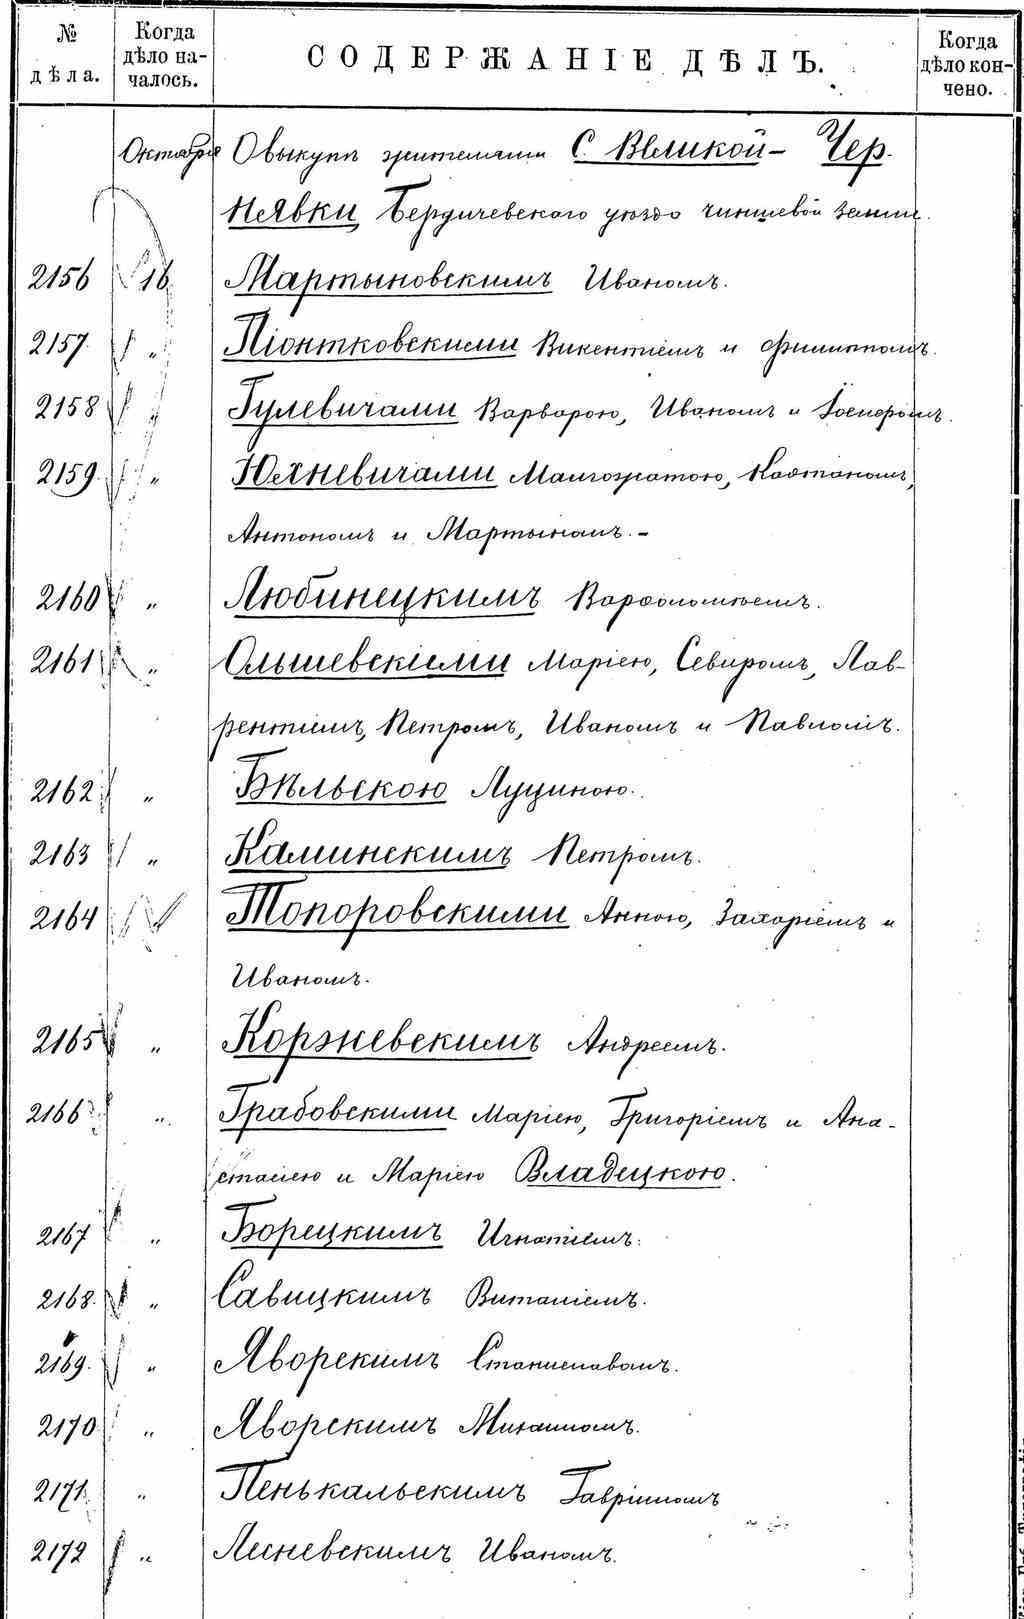 № дѣла.
Когда дѣло на-
чалось.
СОДЕРЖАНІЕ ДѢЛЪ.
Когда дѣло кон-
чено.
Октября О выкупѣ жителями С. Великой-Чер-
нявки Бердичевскаго уѣзда чиншевой земли.
2156 16 Мартыновскимъ Иваномъ.
2157. " Піонтковскими Викентіемъ и Филиппомъ.
2158 " Гулевичами Варварою, Иваномъ и Іосифомъ.
2159. " Юхневичами Малгожатою, Каэтаномъ,
Антономъ и Мартыномъ.-
2160 " Любинецкимъ Варфоломѣемъ.
2161 " Ольшевскими Маріею, Севиромъ, Лав-
рентіемъ, Петромъ, Иваномъ и Павломъ.
2162 " Бѣльскою Луциною.
2163 " Каминскимъ Петромъ.
2164 " Топоровскими Анною, Захаріемъ и
Иваномъ.
2165 " Коржневскимъ Андреемъ.
2166 " Грабовскими Маріею, Григоріемъ и Ана-
стасіею и Маріею Владецкою.
2167 " Борецкимъ Игнатіемъ.
2168. " Савицкимъ Виталіемъ.
2169. " Яворскимъ Станиславомъ.
2170 " Яворскимъ Михаиломъ.
2171 " Пенькальскимъ Гавріиломъ
2172 " Лесневскимъ Иваномъ.